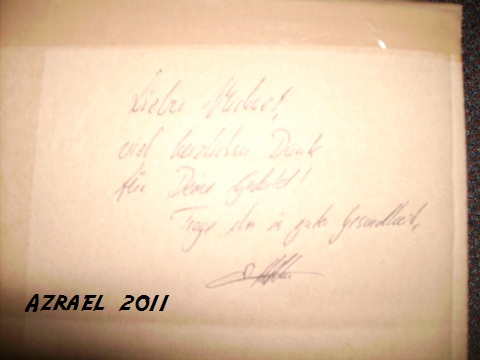 Lieber Michael,
viel herzlichen Dank
für Deine Geduld!
Trage ihn in guter Gesundheit,
AZRAEL 2011